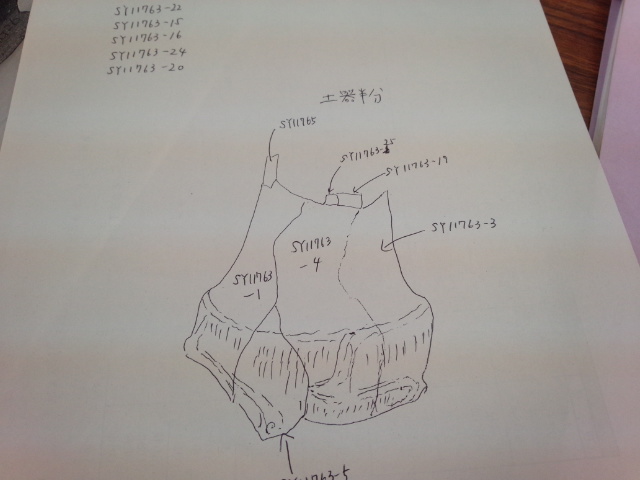 SY11763-22
SY11763-15
SY11763-16
SY11763-24
SY11763-20
土器半分
SY11765
SY11763-25
SY11763-19
SY11763-3
SY11763
-4
SY11763
-1
SY11763-5